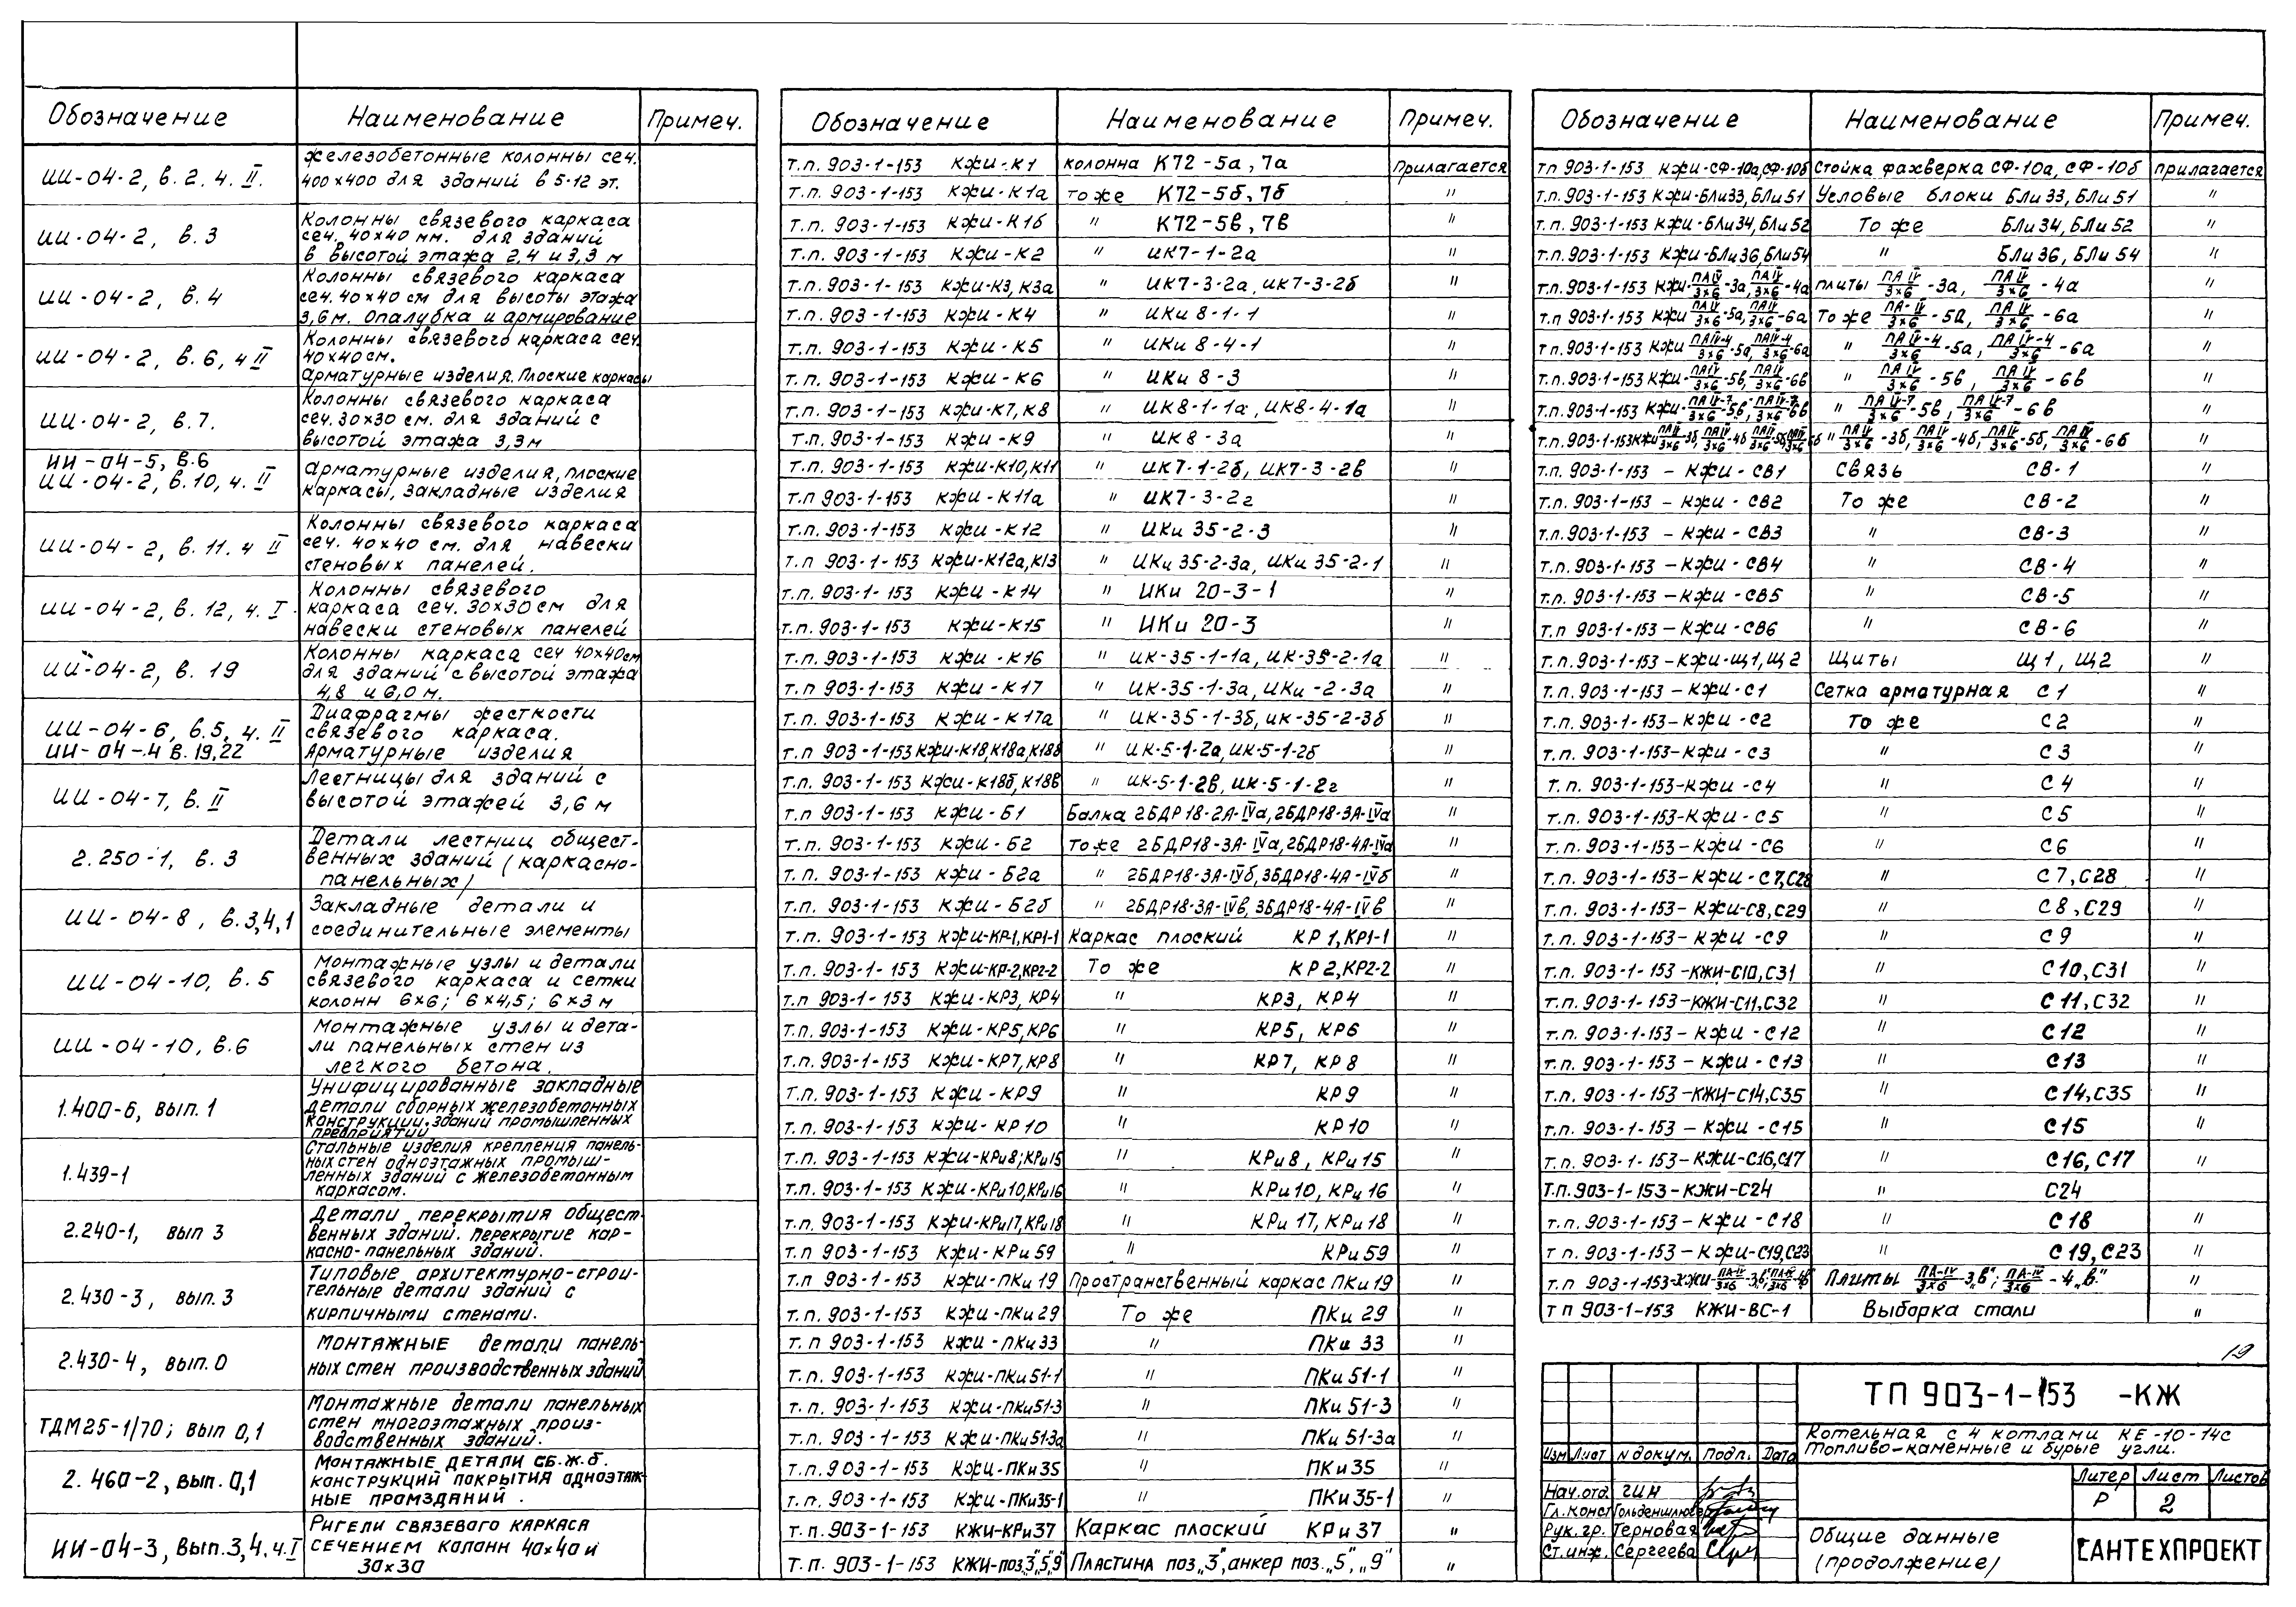 Обозначение Наименование Примеч.
ИИ-04-2, в.2. ч. II. железобетонные колонны сеч.
400х400 для зданий в 5-12 эт.
ИИ-04-2, в.3 Колонны связевого каркаса
сеч. 40х40 мм. для зданий
в высотой этажа 2,4 и 3,3 м
ИИ-04-2, в.4 Колонны связевого каркаса
сеч. 40х40 см для высоты этажа
3,6 м. Опалубка и армирование
ИИ-04-2, в.6, ч II Колонны связевого каркаса сеч.
40х40см.
Арматурные изделия. Плоские каркасы
ИИ-04-2, в.7. Колонны связевого каркаса
сеч. 30х30 см. для зданий с
высотой этажа 3,3м
ИИ-04-5, в.6
ИИ-04-2, в.10, ч. II арматурные изделия, плоские
каркасы, закладные изделия
ИИ-04-2, в.11. ч II Колонны связевого каркаса
сеч. 40х40 см. для навески
стеновых панелей.
ИИ-04-2, в.12, ч. I. Колонны связевого
каркаса сеч. 30х30см для
навески стеновых панелей
ИИ-04-2, в. 19 Колонны каркаса сеч 40х40см
для зданий с высотой этажа
4,8 и 6,0 м.
ИИ-04-6, в.5, ч. II
ИИ-04-4 в. 19,22 Диафрагмы жесткости
связевого каркаса.
Арматурные изделия
ИИ-04-7, в. II Лестницы для зданий с
высотой этажей 3,6 м
2.250-1, в.3 Детали лестниц общест-
венных зданий (каркасно-
панельных)
ИИ-04-8, в.3,4,1 Закладные детали и
соединительные элементы
ИИ-04-10, в.5 Монтажные узлы и детали
связевого каркаса и сетки
колонн 6х6; 6х4,5; 6х3м
ИИ-04-10, в.6 Монтажные узлы и дета-
ли панельных стен из
легкого бетона.
1.400-6, вып.1 Унифицированные закладные
детали сборных железобетонных
конструкций зданий промышленных
предприятий
1.439-1 Стальные изделия крепления панель-
ных стен одноэтажных промыш-
ленных зданий с железобетонным
каркасом.
2.240-1, вып 3 Детали перекрытия общест-
венных зданий. Перекрытие кар-
касно-панельных зданий.
2.430-3, вып.3 Типовые архитектурно-строи-
тельные детали зданий с
кирпичными стенами.
2.430-4, вып.0 Монтажные детали панель-
ных стен производственных зданий
ТДМ25-1/70; вып 0,1 Монтажные детали панельных
стен многоэтажных произ-
водственных зданий.
2.460-2, вып.0,1 Монтажные детали сб.ж.б.
конструкций покрытия одноэтаж-
ные промзданий.
ИИ-04-3, вып.3,4, ч.I Ригели связевого каркаса
сечением колонн 40х40 и
30х30
Обозначение Наименование Примеч.
т.п. 903-1-153 КЖИ-К1 колонна К72-5а, 7а прилагается
т.п. 903-1-153 КЖИ-К1а то же К72-5б, 7б "
т.п. 903-1-153 КЖИ-К1б " К72-5в, 7в "
т.п. 903-1-153 КЖИ-К2 " ИК7-1-2а "
т.п. 903-1-153 КЖИ-К3, К3а " ИК7-3-2а, ИК7-3-2б "
т.п. 903-1-153 КЖИ-К4 " ИКи 8-1-1 "
т.п. 903-1-153 КЖИ-К5 " ИКи 8-4-1 "
т.п. 903-1-153 КЖИ-К6 " ИКи 8-3 "
т.п. 903-1-153 КЖИ-К7, К8 " ИК8-1-1а, ИК8-4-1а "
т.п. 903-1-153 КЖИ-К9 " ИК8-3а "
т.п. 903-1-153 КЖИ-К10, К11 " ИК7-1-2б, ИК7-3-2в "
т.п 903-1-153 КЖИ-К11а " ИК7-3-2г "
т.п. 903-1-153 КЖИ-К12 " ИКи 35-2-3 "
т.п 903-1-153 КЖИ-К12а, К13 " ИКи 35-2-3а, ИКи 35-2-1 "
т.п. 903-1-153 КЖИ-К14 " ИКи 20-3-1 "
т.п. 903-1-153 КЖИ-К15 " ИКи 20-3 "
т.п. 903-1-153 КЖИ-К16 " ИК-35-1-1а, ИК-35-2-1а "
т.п. 903-1-153 КЖИ-К17 " ИК-35-1-3а, ИКи-2-3а "
т.п. 903-1-153 КЖИ-К17а " ИК-35-1-3б, ИК-35-2-3б "
т.п 903-1-153 КЖИ-К18, К18а, К18б " ИК-5-1-2а, ИК-5-1-2б "
т.п. 903-1-153 КЖИ-К18б, К18в " ИК-5-1-2в, ИК-5-1-2г "
т.п. 903-1-153 КЖИ-Б1 Балка 2БДР18-2А-IVа, 2БДР18-3А-IVа "
т.п. 903-1-153 КЖИ-Б2 то же 2БДР18-3А-IVа, 2БДР18-4А-IVа "
т.п. 903-1-153 КЖИ-Б2а " 2БДР18-3А-IVб, 3БДР18-4А-IVб "
т.п. 903-1-153 КЖИ-Б2б " 2БДР18-3А-IVв, 3БДР18-4А-IVв "
т.п. 903-1-153 КЖИ-КР-1, КР1-1 Каркас плоский КР1, КР1-1 "
т.п. 903-1-153 КЖИ-КР-2, КР2-2 То же КР2, КР2-2 "
т.п 903-1-153 КЖИ-КР3, КР4 " КР3, КР4 "
т.п. 903-1-153 КЖИ-КР5, КР6 " КР5, КР6 "
т.п. 903-1-153 КЖИ-КР7, КР8 " КР7, КР8 "
т.п. 903-1-153 КЖИ-КР9 " КР9 "
т.п. 903-1-153 КЖИ-КР10 " КР10 "
т.п. 903-1-153 КЖИ-КРи8; КРи15 " КРи8, КРи15 "
т.п. 903-1-153 КЖИ-КРи10, КРи16 " КРи10, КРи16 "
т.п. 903-1-153 КЖИ-КРи17, КРи18 " КРи17, КРи18 "
т.п 903-1-153 КЖИ-КРи59 " КРи59 "
т.п 903-1-153 КЖИ-ПКи19 Пространственный каркас ПКи19 "
т.п. 903-1-153 КЖИ-ПКи29 То же ПКи 29 "
т.п. 903-1-153 КЖИ-ПКи33 " ПКи 33 "
т.п. 903-1-153 КЖИ-ПКи51-1 " ПКи 51-1 "
т.п. 903-1-153 КЖИ-ПКи51-3 " ПКи 51-3 "
т.п. 903-1-153 КЖИ-ПКи51-3а " ПКи 51-3а "
т.п. 903-1-153 КЖИ-ПКи35 " ПКи35 "
т.п. 903-1-153 КЖИ-ПКи35-1 " ПКи35-1 "
т.п. 903-1-153 КЖИ-КРи37 Каркас плоский КРи37 "
т.п. 903-1-153 КЖИ-поз.„3",„5",„9" Пластина поз.„3", анкер поз.„5",„9" "
Обозначение Наименование Примеч.
тп 903-1-153 КЖИ-СФ-10а, СФ-10б Стойка фахверка СФ-10а, СФ-10б прилагается
т.п. 903-1-153 КЖИ-БЛи33, БЛи51 Угловые блоки БЛи33, БЛи51 "
т.п. 903-1-153 КЖИ-БЛи34, БЛи52 То же БЛи34, БЛи52 "
т.п. 903-1-153 КЖИ-БЛи36, БЛи54 " БЛи36, БЛи54 "
т.п. 903-1-153 КЖИ-ПАIV/3х6-3а, ПАIV/3х6-4а плиты ПАIV/3х6-3а, ПАIV/3х6-4а "
т.п 903-1-153 КЖИ ПАIV/3х6-5а, ПАIV/3х6-6а То же ПА-IV/3х6-5а, ПАIV/3х6-6а "
т.п. 903-1-153 КЖИ ПАIV-4/3х6-5а, ПАIV-4/3х6-6а " ПАIV-4/3х6-5а, ПАIV-4/3х6-6а "
т.п. 903-1-153 КЖИ-ПАIV/3х6-5в, ПАIV/3х6-6в " ПАIV/3х6-5в, ПАIV/3х6-6в "
т.п. 903-1-153 КЖИ-ПАIV-7/3х6-5в, ПАIV-7/3х6-6в " ПАIV-7/3х6-5в, ПАIV-7/3х6-6в "
т.п. 903-1-153 КЖИ ПАIV/3х6-3б, ПАIV/3х6-4б, ПАIV/3х6-5б, ПАIV/3х6-6б " ПАIV/3х6-3б, ПАIV/3х6-4б, ПАIV/3х6-5б, ПАIV/3х6-6б "
т.п. 903-1-153 - КЖИ-СВ1 Связь СВ-1 "
т.п. 903-1-153 - КЖИ-СВ2 То же СВ-2 "
т.п. 903-1-153 - КЖИ-СВ3 " СВ-3 "
т.п. 903-1-153 - КЖИ-СВ4 " СВ-4 "
т.п. 903-1-153 - КЖИ-СВ5 " СВ-5 "
т.п 903-1-153 - КЖИ-СВ6 " СВ-6 "
т.п. 903-1-153 - КЖИ-Щ1, Щ2 Щиты Щ1, Щ2 "
т.п. 903-1-153 - КЖИ-С1 Сетка арматурная С1 "
т.п. 903-1-153 - КЖИ-С2 То же С2 "
т.п. 903-1-153 - КЖИ-С3 " С3 "
т.п. 903-1-153-КЖИ-С4 " С4 "
т.п. 903-1-153-КЖИ-С5 " С5 "
т.п. 903-1-153-КЖИ-С6 " С6 "
т.п. 903-1-153-КЖИ-С7, С28 " С7, С28 "
т.п. 903-1-153-КЖИ-С8, С29 " С8, С29 "
т.п. 903-1-153-КЖИ-С9 " С9 "
т.п. 903-1-153-КЖИ-С10, С31 " С10, С31 "
т.п. 903-1-153-КЖИ-С11, С32 " С11, С32 "
т.п. 903-1-153-КЖИ-С12 " С12 "
т.п. 903-1-153-КЖИ-С13 " С13 "
т.п. 903-1-153-КЖИ-С14, С35 " С14, С35 "
т.п. 903-1-153-КЖИ-С15 " С15 "
т.п. 903-1-153-КЖИ-С16, С17 " С16, С17 "
Т.П. 903-1-153-КЖИ-С24 " С24
т.п. 903-1-153-КЖИ-С18 " С18 "
т п. 903-1-153-КЖИ-С19, С23 " С19, С23 "
т.п 903-1-153-КЖИ-ПА-IV/3х6-3„в", ПА-IV/3х6-4„в" Плиты ПА-IV/3х6-3„в"; ПА-IV/3х6-4„в." "
т п 903-1-153 КЖИ-ВС-1 Выборка стали "
19
ТП 903-1-153 -КЖ
Котельная с 4 котлами КЕ-10-14с
Топливо-каменные и бурые угли.
Изм Лист N докум. подп. Дата
Литер Лист Листов
Р 2
Нач.отд. ГИН
Гл.конст
Рук.гр. Терновая
Ст.инж. Сергеева
Общие данные
(продолжение)
САНТЕХПРОЕКТ